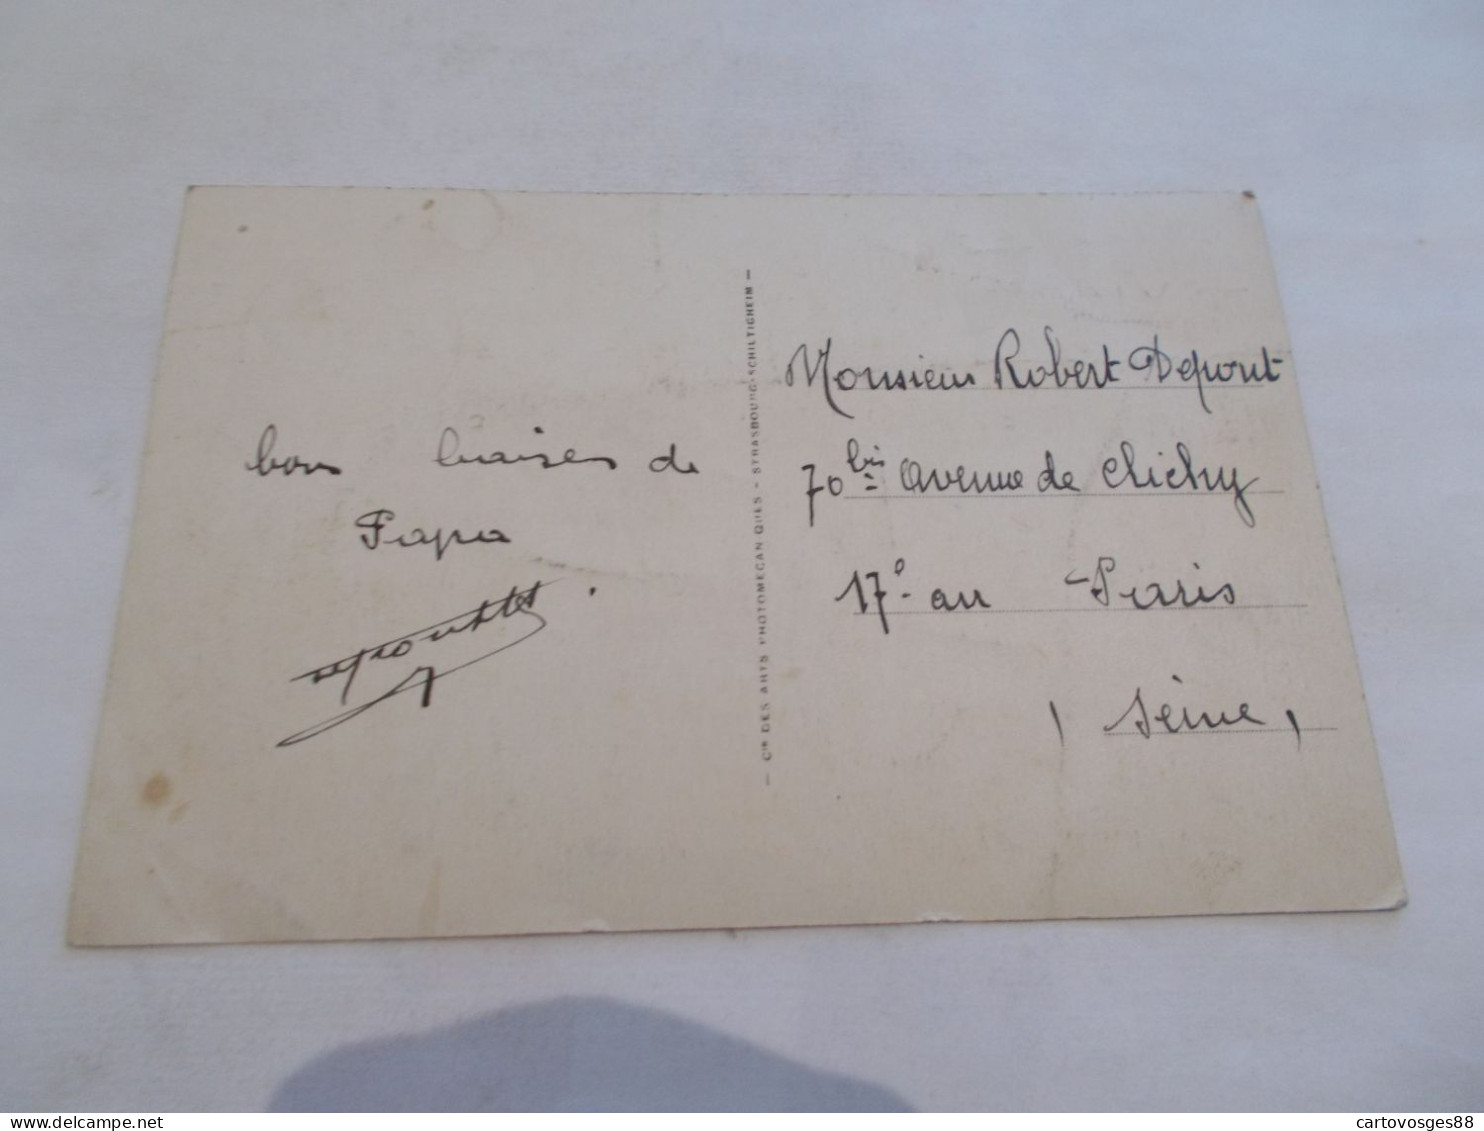 bons baises de
Papa
— Cie DES ARTS PHOTOMECANIQUES - STRASBOURG-SCHILTIGHEIM —
Monsieur Robert Depont
70 bis avenue de Clichy
17e ar Paris
(Seine)
cartovosges88